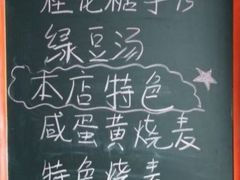 桂花糖芋艿
绿豆汤
本店特色
咸蛋黄烧麦
特色烧麦